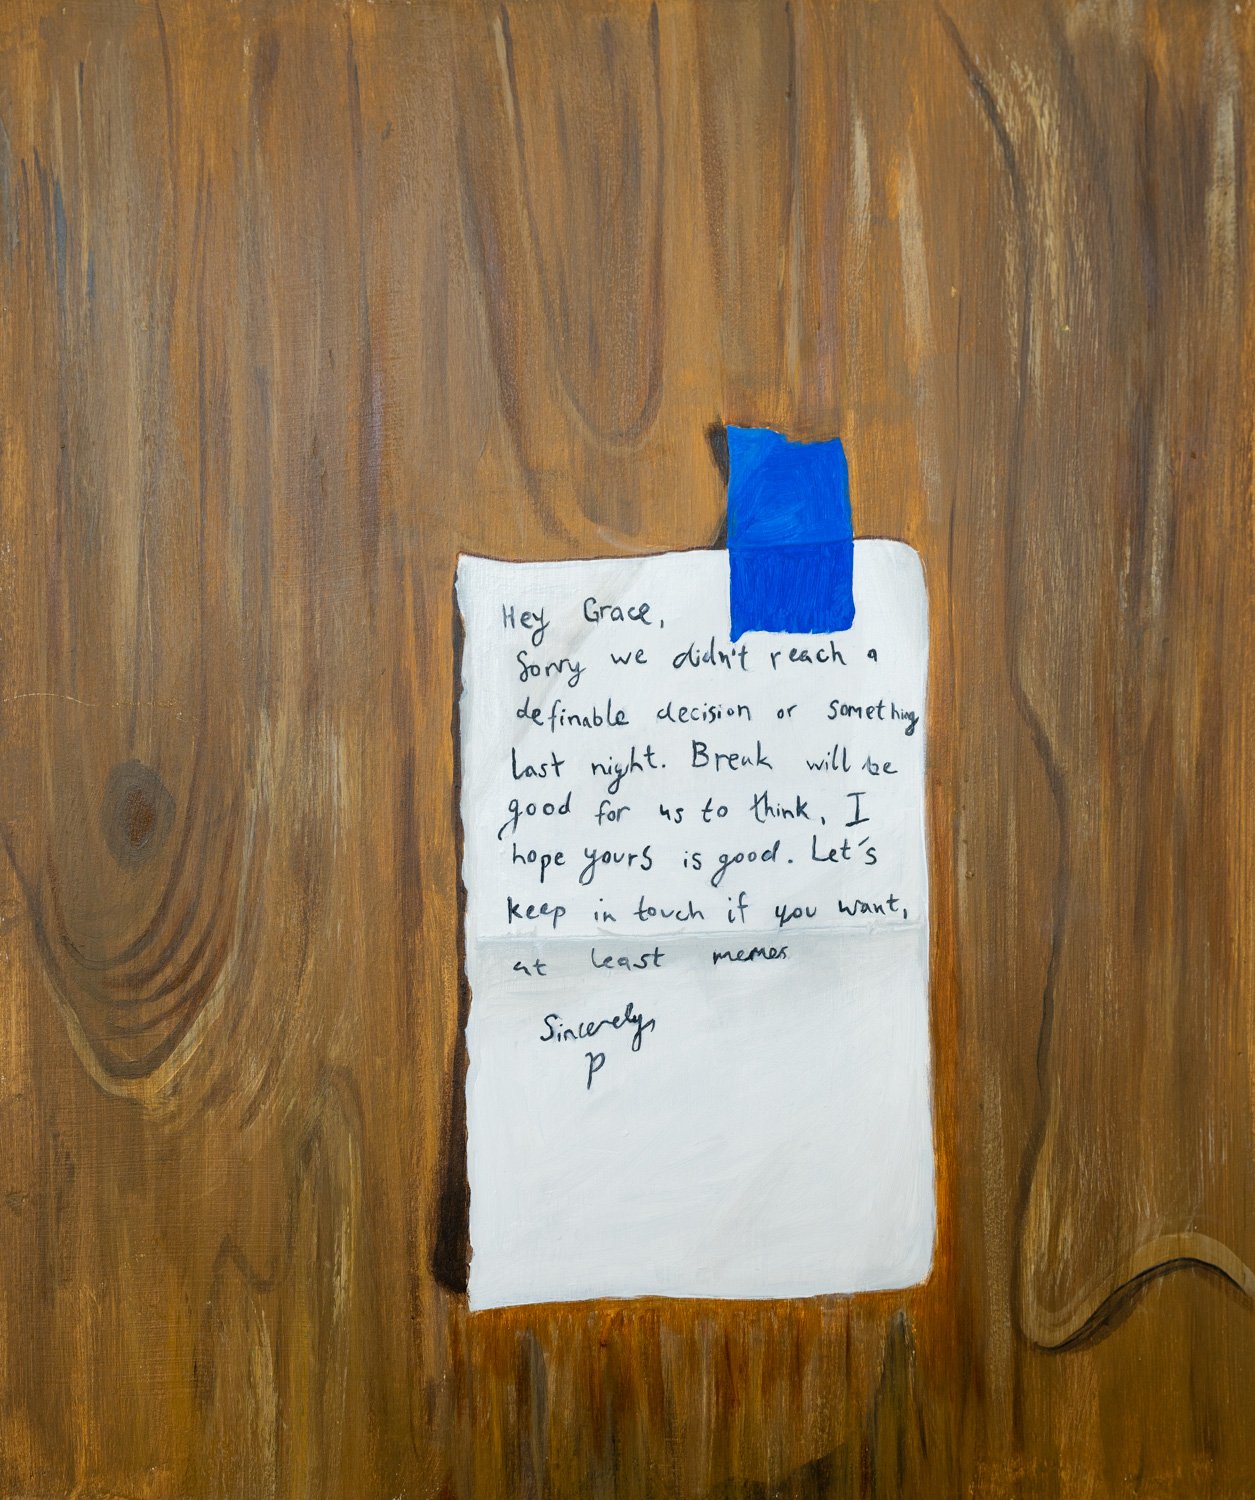 Hey Grace,
Sorry we didn't reach a
definable decision or something
last night. Break will be
good for us to think, I
hope yours is good. Let's
keep in touch if you want,
at least memes
Sincerely,
P